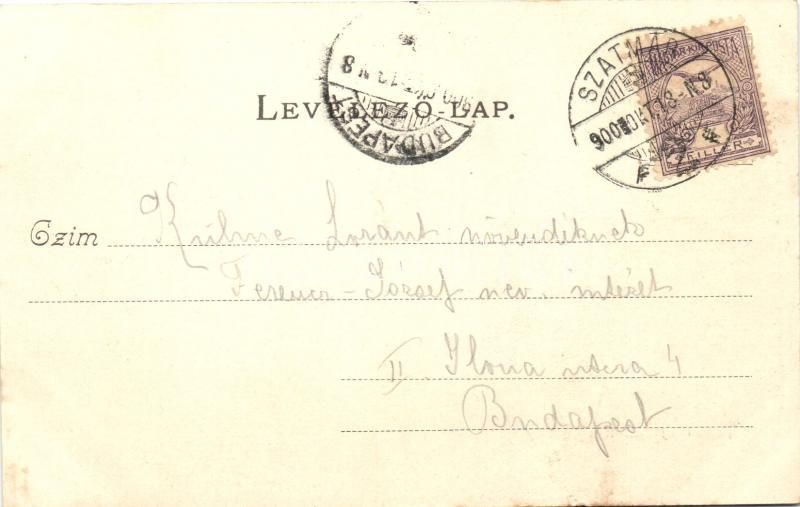 LEVELEZŐ-LAP.
BUDAPEST
SZATMÁR
MAGYAR KIR. POSTA
FILLÉR
Czim Kühne Loránt növendéknek
Ferencz-József nev. intézet
II Ilona utcza 4
Budapest